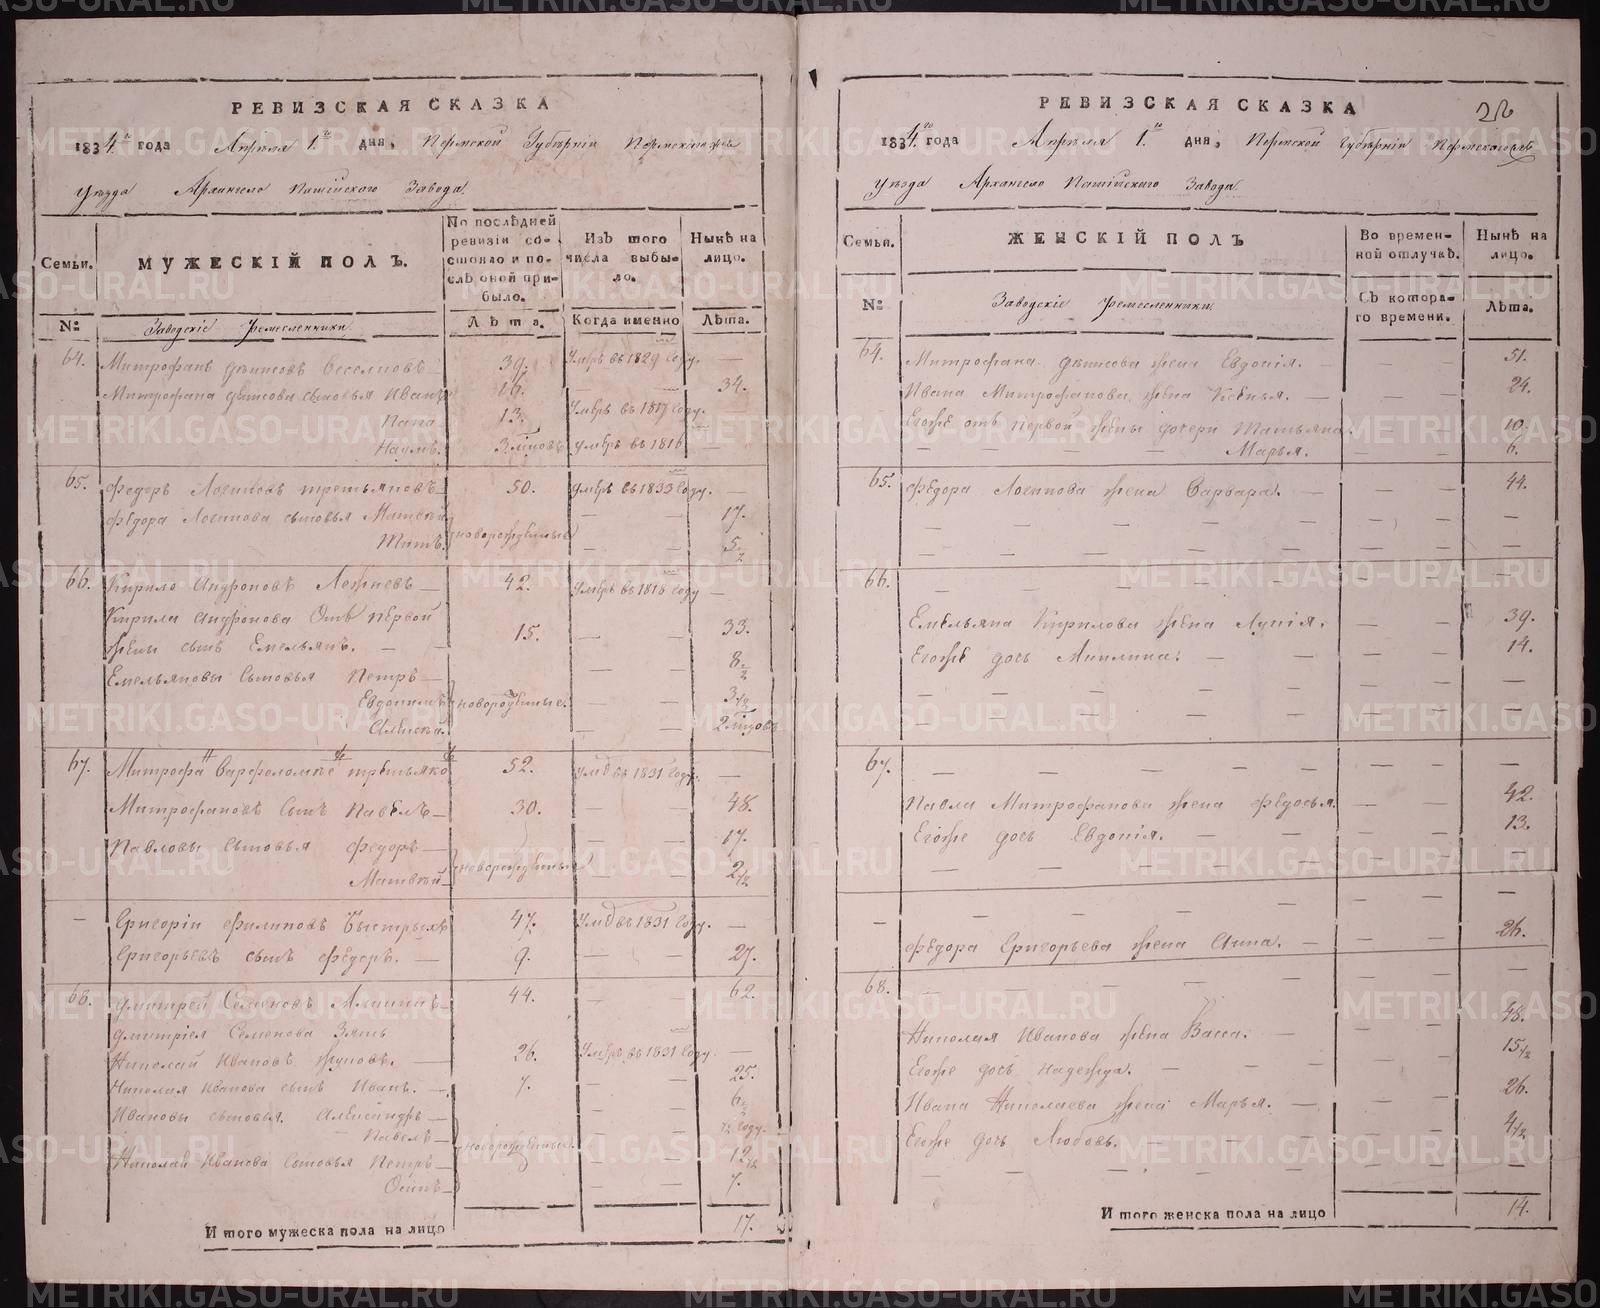 РЕВИЗСКАЯ СКАЗКА
1834го года Апреля 1го дня, Пермской Губернiи Пермскаго
уезда Архангело Пашiйскаго Завода.
Семьи.
МУЖЕСКIЙ ПОЛЪ.
По послѣдней ревизiи состояло и послѣ оной прибыло.
Изъ того числа выбыло.
Нынѣ на лицо.
№
Заводскiе Ремесленники
Лѣта.
Когда именно
Лѣта.
64. Митрофанъ Веселковъ 39. Умеръ въ 1829 году. —
Митрофана сыновья Иванъ 16. — 34.
13. Умеръ въ 1817 году. —
Наумъ. умеръ въ 1816 —
65. Федоръ Логиновъ Третьяковъ 50. умеръ въ 1833 году. —
Федора Логинова сыновья Матвей 17.
Титъ. новорожденные 5 1/2
66. Кирило Андроновъ 42. умеръ въ 1818 году —
Кирила Андронова Отъ первой
жены сынъ Емельянъ. — 15. — 33.
Емельяновы Сыновья Петръ — 8 1/2
Евдокимъ новорожденные. 3 1/2
Алексей.
67. Митрофанъ Варфоломеевъ Третьяковъ 52. Умеръ въ 1831 году. —
Митрофановъ Сынъ Павелъ — 30. — 48.
Павловы Сыновья Федоръ — 17.
Матвей — новорожденные 2 1/2
— Григорiй Филиповъ Быстрыхъ 47. Умеръ въ 1831 году. —
Григорьевъ сынъ Федоръ. — 9. — 27.
68. Дмитрей Семеновъ 44. — 62.
Дмитрiя Семенова Зять
Николай Ивановъ Жуковъ. — 26. Умеръ въ 1831 году. —
Николая Иванова сынъ Иванъ. — 7. — 25.
Ивановы сыновья. Александръ — 6 1/2
Павелъ — новорожденные 1/2 году.
Николая Иванова Сыновья Петръ — 12 1/2
Осипъ — 7.
И того мужеска пола на лицо 17.
РЕВИЗСКАЯ СКАЗКА
1834го года Апреля 1го дня, Пермской Губернiи Пермскаго
уезда Архангело Пашiйскаго Завода.
Семьи.
ЖЕНСКIЙ ПОЛЪ
Во временной отлучкѣ.
Нынѣ на лицо.
№
Заводскiе Ремесленники
Съ котораго времени.
Лѣта.
64. Митрофана жена Евдокiя. — 51.
Ивана Митрофанова жена Ксенья. — 24.
Егоже отъ первой жены дочери Татьяна. 10.
Марья. 6.
65. Федора Логинова жена Варвара. — 44.
66.
Емельяна Кирилова жена Лукiя. 39.
Егоже дочь Акилина. — 14.
67.
Павла Митрофанова жена Федосья. 42.
Егоже дочь Евдокiя. — 13.
Федора Григорьева жена Анна. — 26.
68.
Николая Иванова жена Васса. — 48.
Егоже дочь Надежда. — 15 1/2
Ивана Николаева жена Марья. — 26.
Егоже дочь Любовь. — 4 1/2
И того женска пола на лицо 14.
METRIKI.GASO-URAL.RU